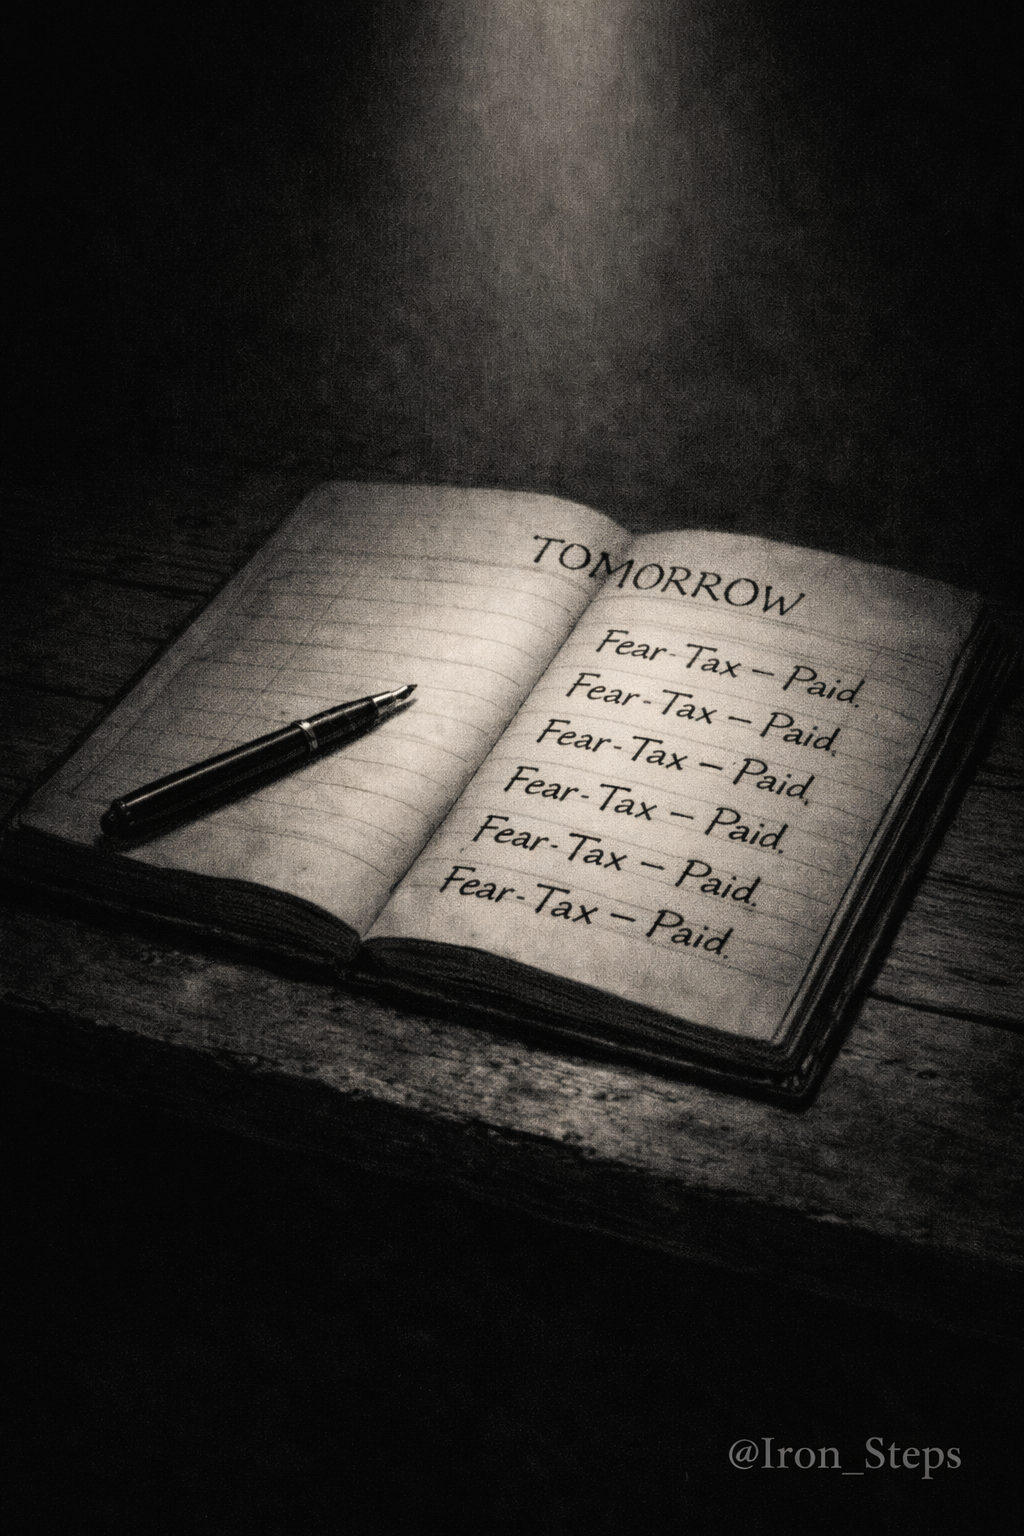 TOMORROW
Fear-Tax — Paid.
Fear-Tax — Paid.
Fear-Tax — Paid.
Fear-Tax — Paid.
Fear-Tax — Paid.
Fear-Tax — Paid.
@Iron_Steps